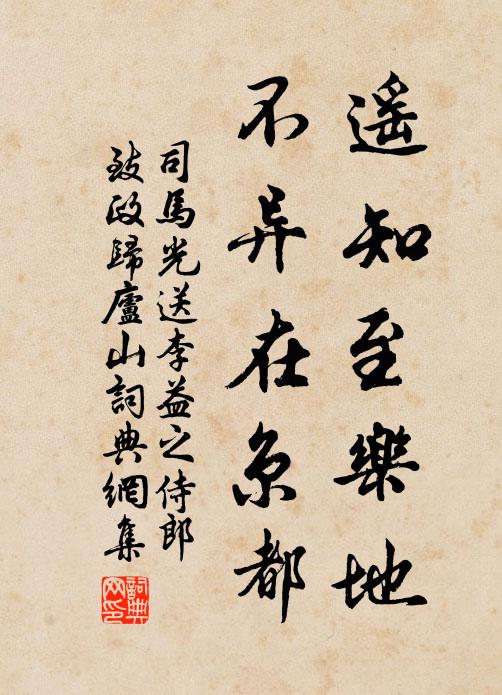 遥知至樂地
不异在京都
司馬光送李益之侍郎
致政歸廬山詞典網集
詞典
网印